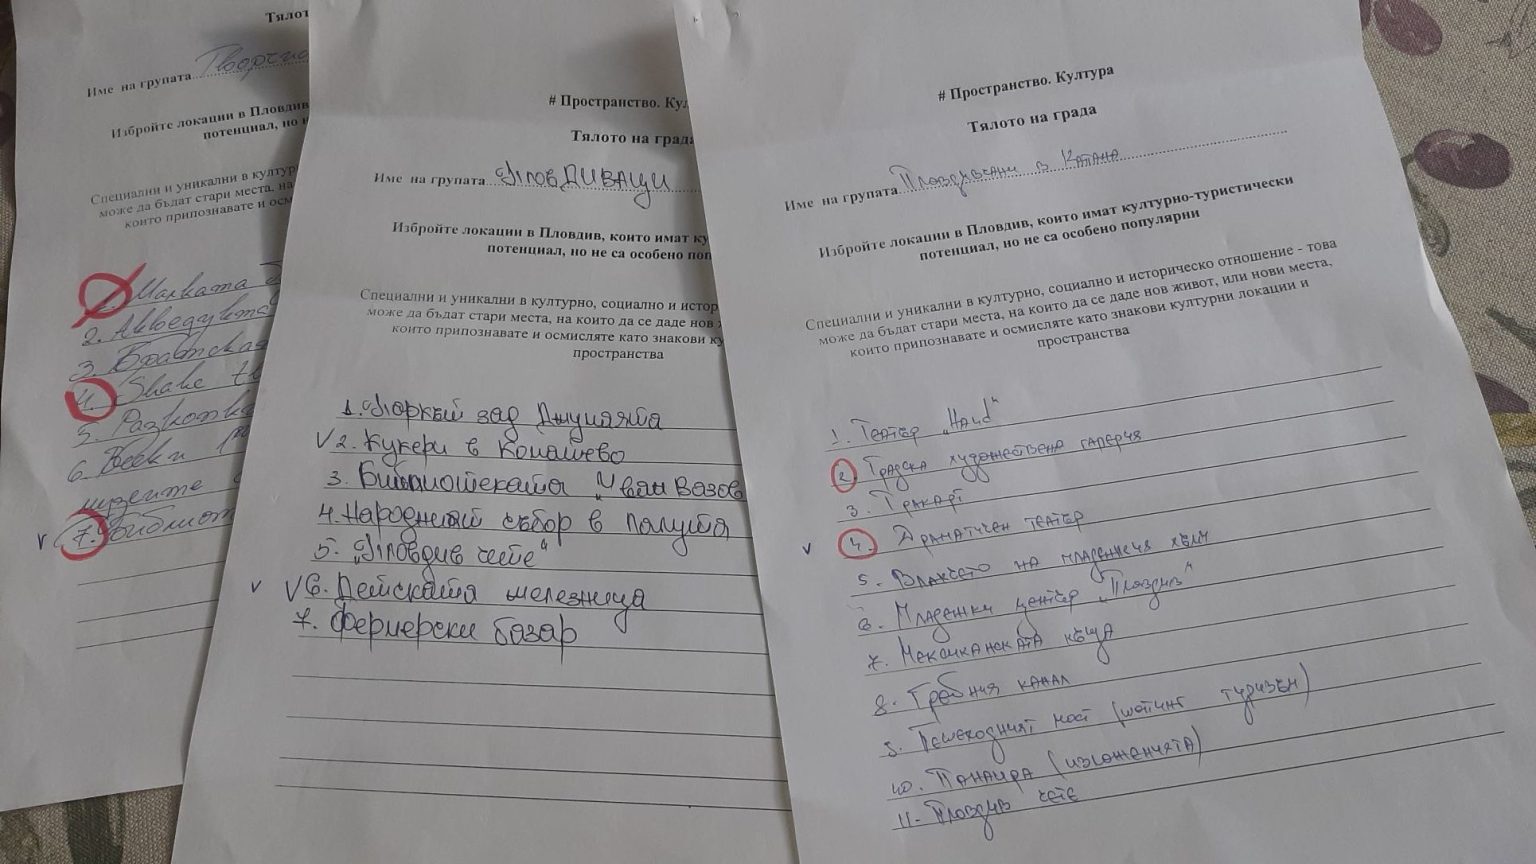 Тялот
Име на групата
Избройте локации в Пловдив
потенциал, но н
Специални и уникални в култур
може да бъдат стари места, на
които припознавате и осм
1. Малката
2. Акведукта
3. Братска
4. Shake
5. Разкопк
6. Всеки
музеите
7. Библиот
# Пространство. Кул
Тялото на града
Име на групата ПловДИВАЦИ
Избройте локации в Пловдив, които имат ку
потенциал, но не са особено поп
Специални и уникални в културно, социално и истор
може да бъдат стари места, на които да се даде нов
които припознавате и осмисляте като знакови ку
пространства
1. Паркът зад Джумаята
V 2. Кукери в Коматево
3. Библиотеката "Иван Вазов
4. Народният събор в
5. "Пловдив чете"
V V 6. Детската железница
7. Фермерски базар
# Пространство. Култура
Тялото на града
Име на групата Пловдивчани в Капана
Избройте локации в Пловдив, които имат културно-туристически
потенциал, но не са особено популярни
Специални и уникални в културно, социално и историческо отношение - това
може да бъдат стари места, на които да се даде нов живот, или нови места,
които припознавате и осмисляте като знакови културни локации и
пространства
1. Театър „Hand"
2. Градска художествена галерия
3. Тракарт
V 4. Драматичен театър
5. Влакчето на младежкия хълм
6. Младежки център "Пловдив"
7. Мексиканската къща
8. Гребния канал
9. Пешеходният мост (шопинг туризъм)
10. Панаира (изложенията)
11. Пловдив чете